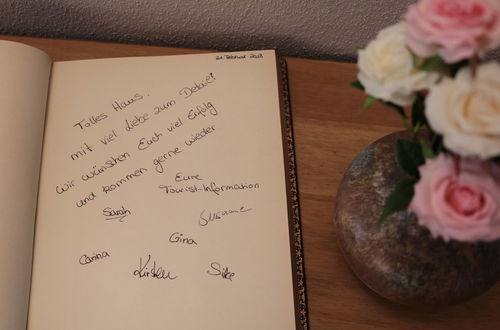 21. Februar 2013
Tolles Haus.
mit viel Liebe zum Detail!
Wir wünschen Euch viel Erfolg
und kommen gerne wieder
Eure
Tourist-Information
Sarah
Susanne
Gina
Carina
Kirsten
Silke